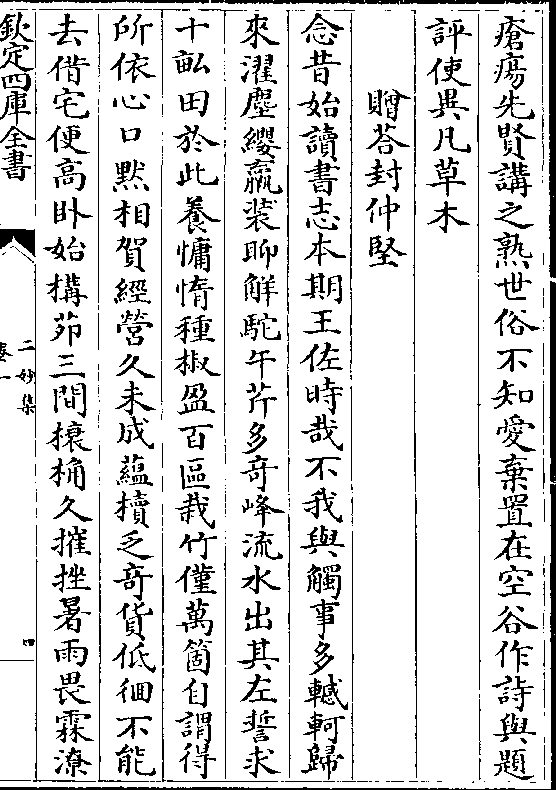 瘡瘍先賢講之熟世俗不知愛棄置在空谷作詩與題
評使異凡草木
贈荅封仲堅
念昔始讀書志本期王佐時哉不我與觸事多轗軻歸
來濯塵纓羸装聊解駝午芹多竒峰流水出其左誓求
十畝田於此養慵惰種椒盈百區栽竹僅萬箇自謂得
所依心口黙相賀經營久未成蘊櫝乏竒貨低徊不能
去借宅便高卧始構茆三間榱桷久摧挫暑雨畏霖潦
欽定四庫全書
二妙集
卷一
四